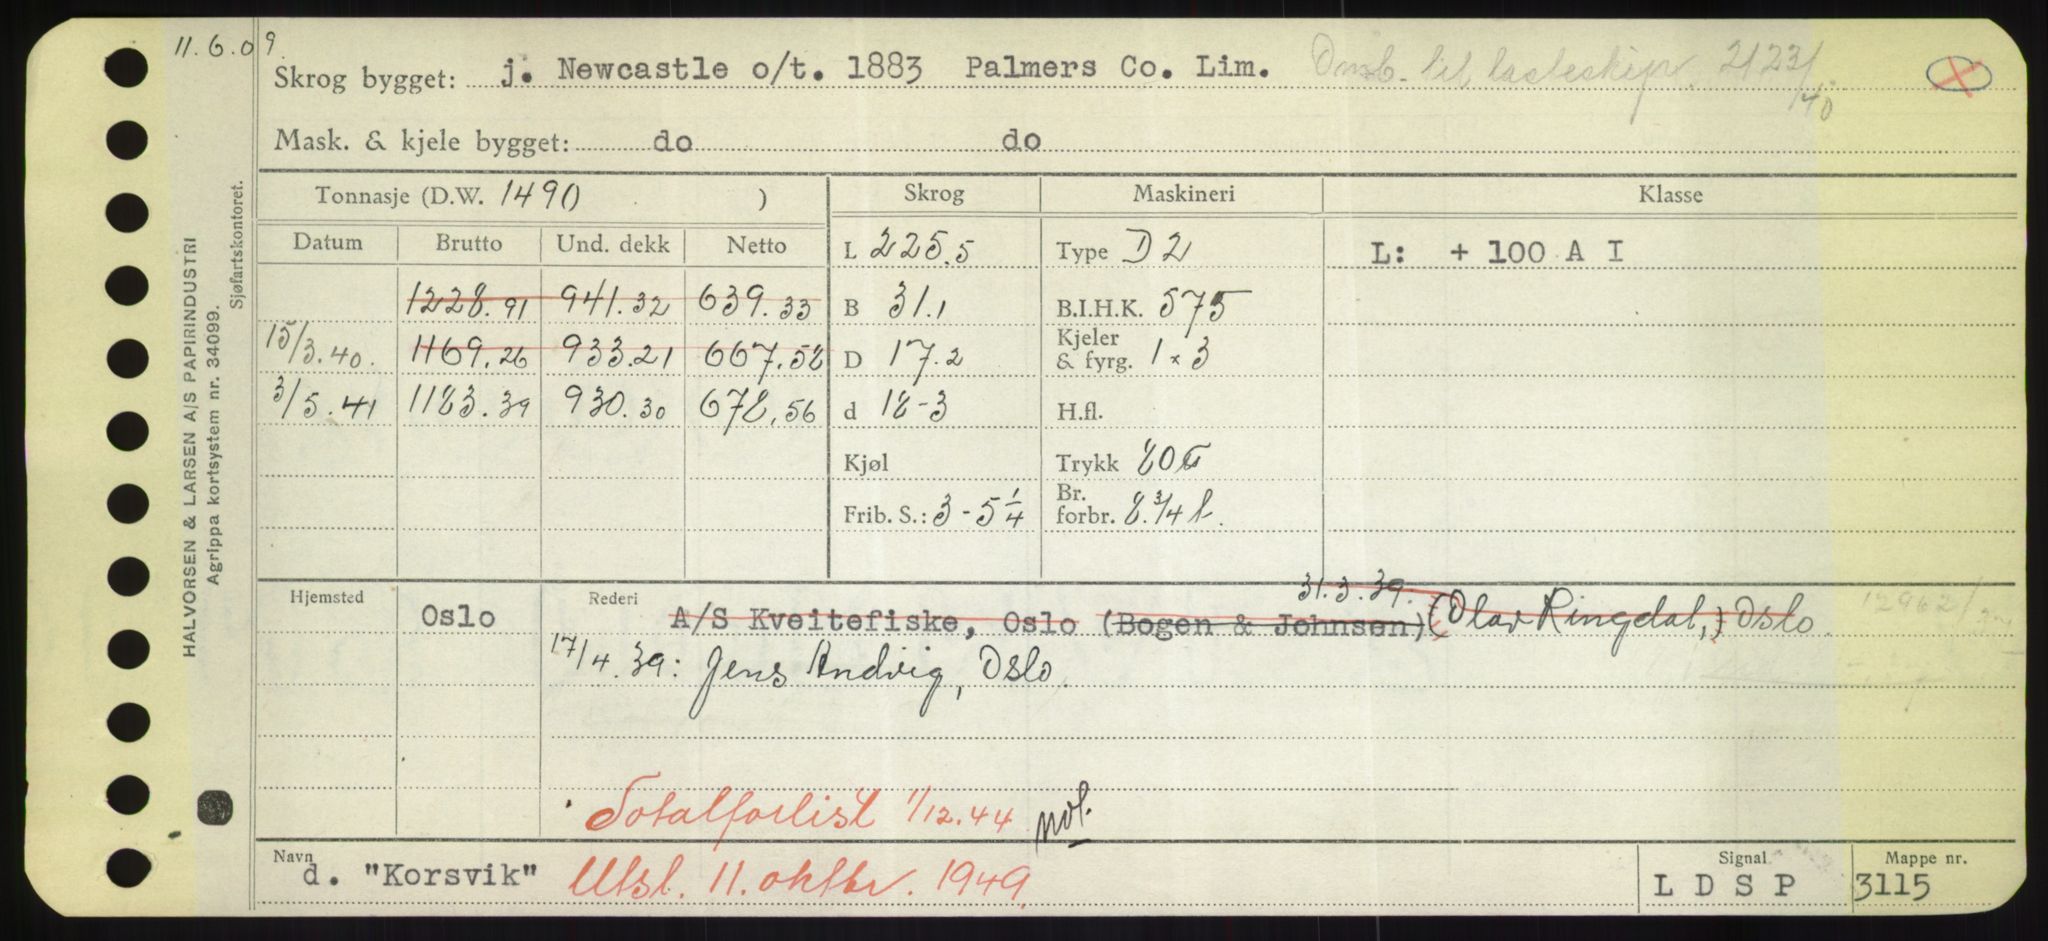 11.6.09
Skrog bygget: j. Newcastle o/t. 1883 Palmers Co. Lim. Omb. til lasteskip. 2123/40
Mask. & kjele bygget: do do
Tonnasje (D.W. 1490 ) Skrog Maskineri Klasse
Datum Brutto Und. dekk Netto L 225.5 Type D 2 L: + 100 A I
1228.91 941.32 639.33 B 31.1 B.I.H.K. 575
15/3.40. 1169.26 933.21 667.58 D 17.2 Kjeler & fyrg. 1 x 3
3/5.41 1183.39 930.30 678.56 d 18-3 H.fl.
Kjøl Trykk 80
Frib. S.: 3-5 1/4 Br. forbr. 8.3/4 t.
31.3.39.
Hjemsted Oslo Rederi A/S Kveitefiske, Oslo (Bogen & Johnsen) (Olav Ringdal,) Oslo. 12962/
17/4.39: Jens Andvig, Oslo.
Totalforlist 1/12.44
Navn d. "Korsvik" Utsl. 11. oktbr. 1949 Signal L D S P Mappe nr. 3115
HALVORSEN & LARSEN A/S PAPIRINDUSTRI
Agrippa kortsystem nr. 34099.
Sjøfartskontoret.